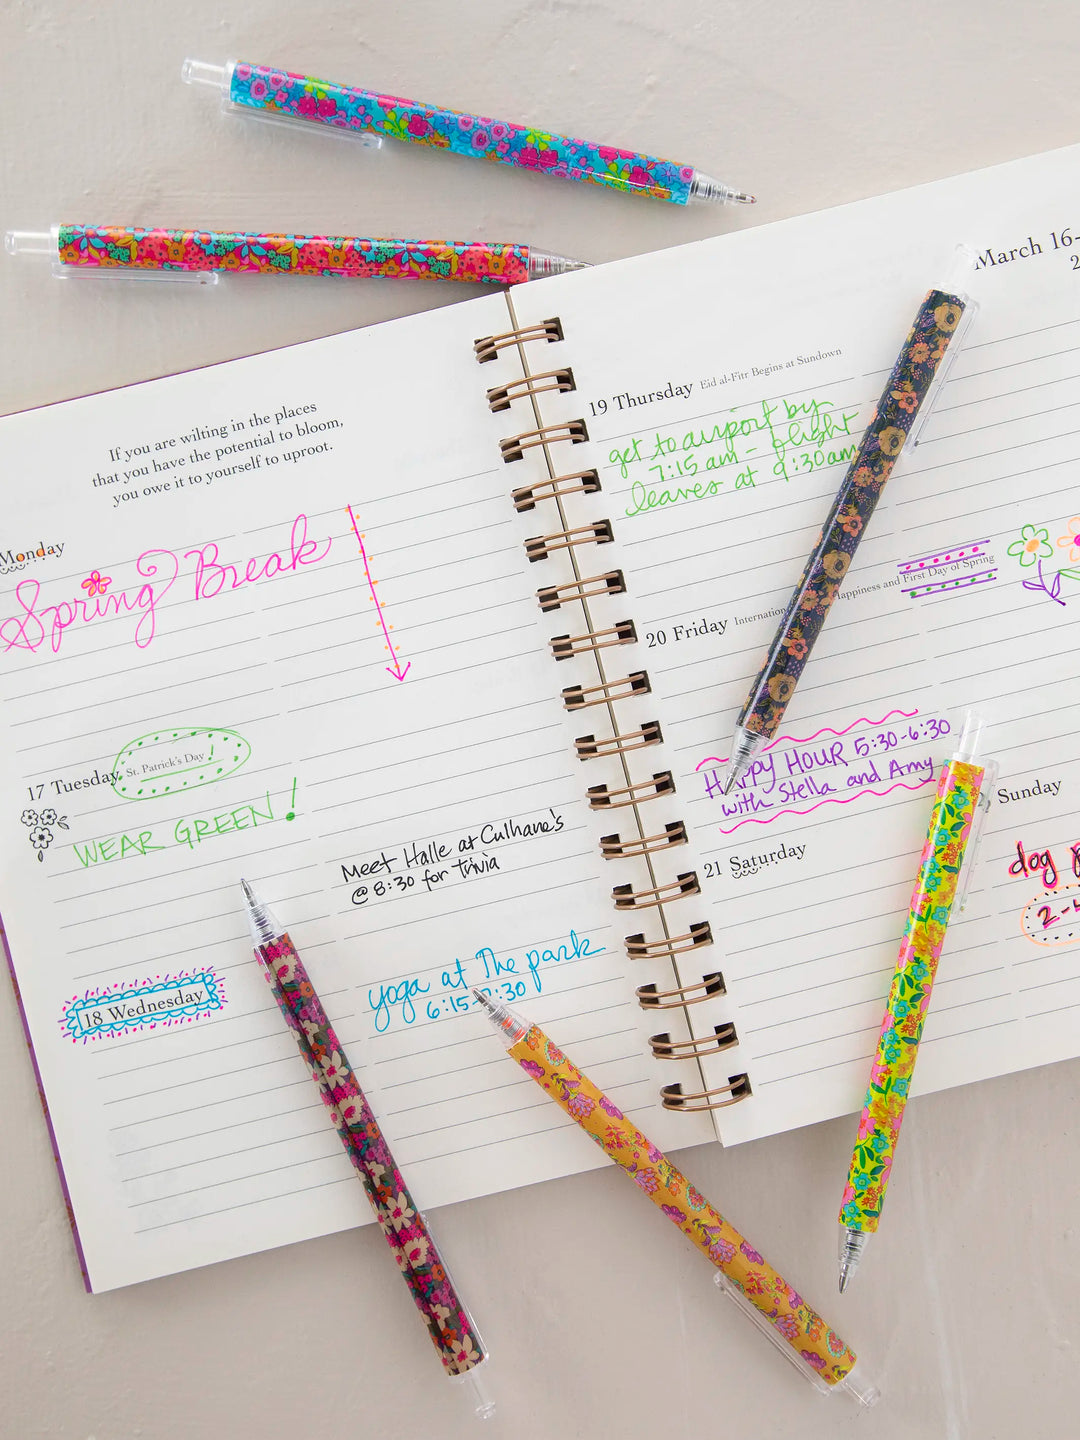 If you are wilting in the places
that you have the potential to bloom,
you owe it to yourself to uproot.
Monday
Spring Break
17 Tuesday St. Patrick's Day!
WEAR GREEN!
Meet Halle at Culhane's
@ 8:30 for trivia
18 Wednesday
yoga at The park
6:15-7:30
March 16-
2
19 Thursday Eid al-Fitr Begins at Sundown
get to airport by
7:15 am - flight
leaves at 9:30am
20 Friday Internation Happiness and First Day of Spring
HAPPY HOUR 5:30-6:30
with Stella and Amy
21 Saturday
Sunday
dog
2-4